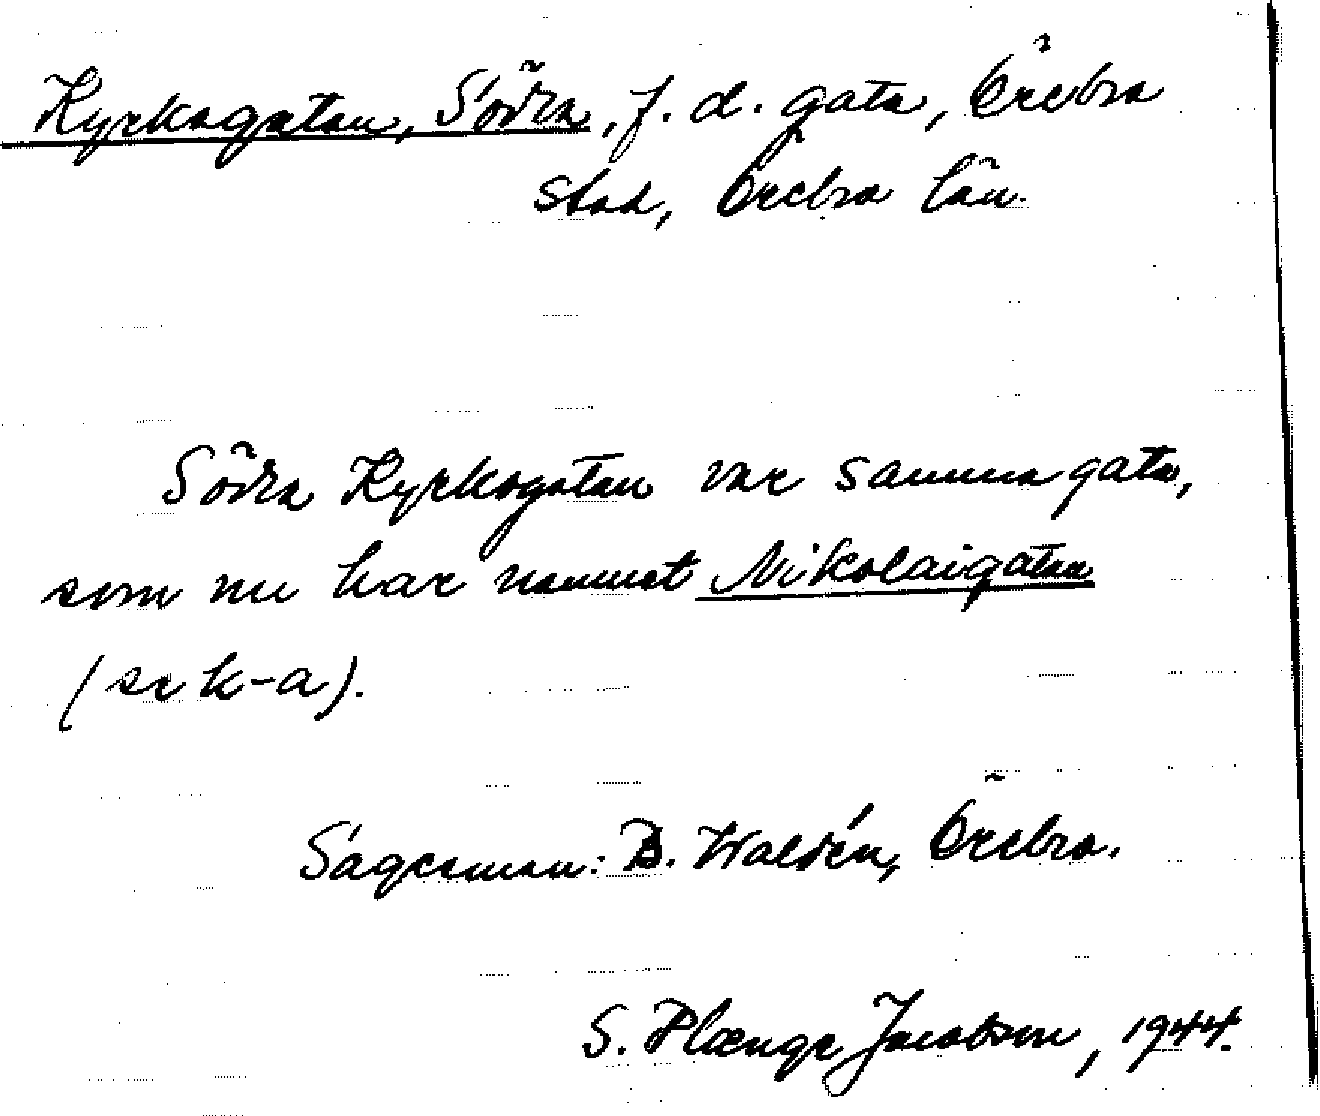 Kyrkogatan, Södra, f. d. gata, Örebro
stad, Örebro län.
Södra Kyrkogatan var samma gata,
som nu har namnet Nikolaigatan
(se k-a).
Sagesman: B. Waldén, Örebro.
S. Plænge Jacobson, 1944.